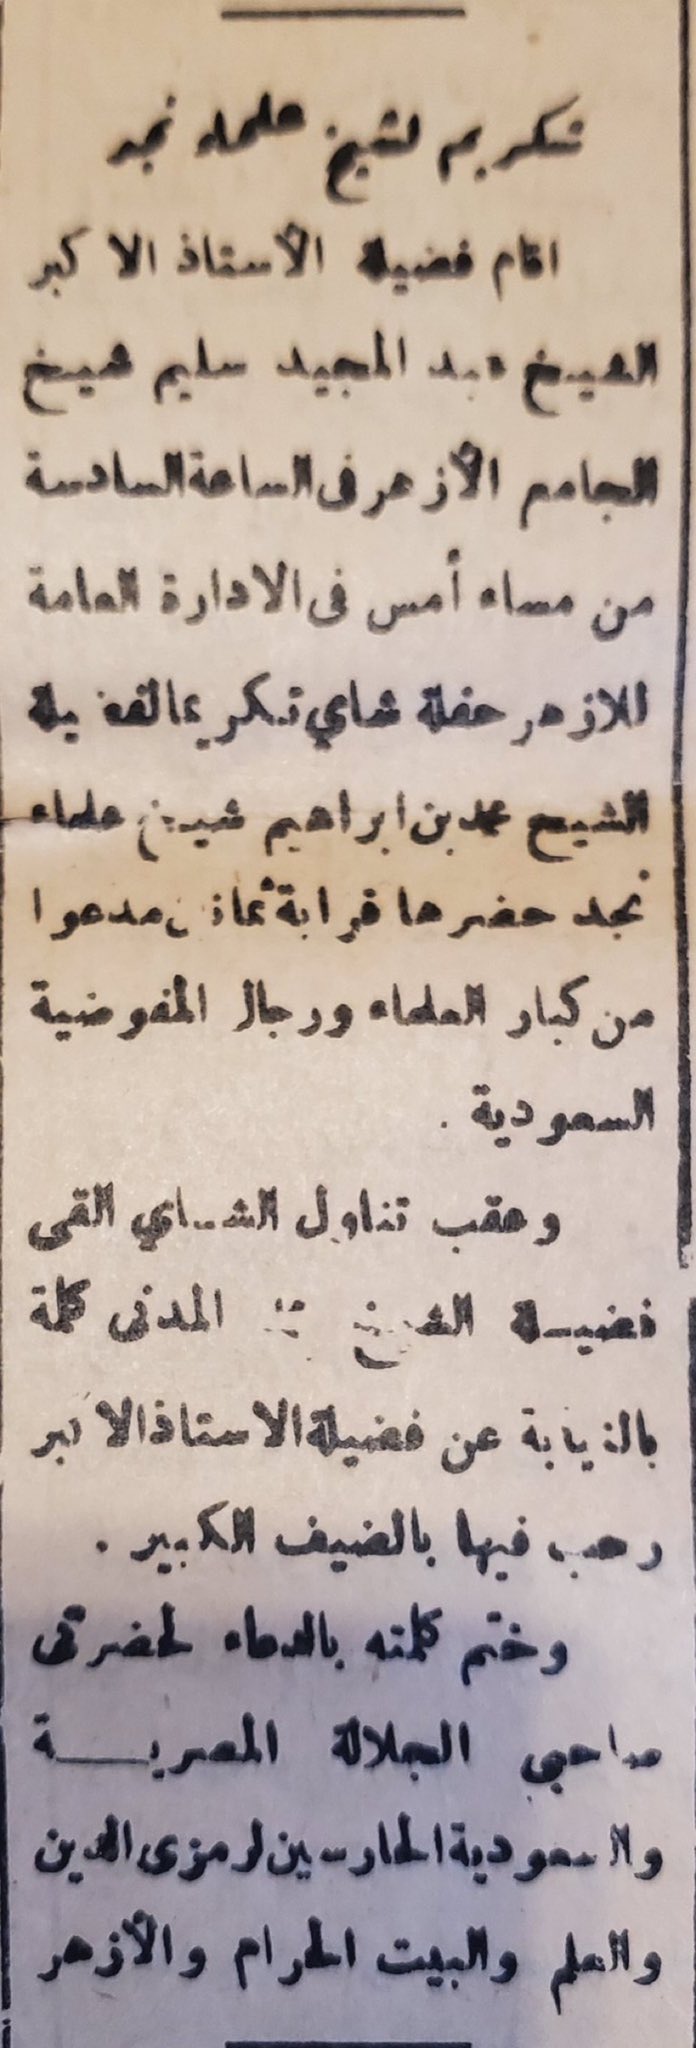 تكريم لشيخ علماء نجد
اقام فضيلة الأستاذ الاكبر
الشيخ عبد المجيد سليم شيخ
الجامع الأزهر فى الساعة السادسة
من مساء أمس فى الادارة العامة
للازهر حفلة شاي تكريما لفضيلة
الشيخ محمد بن ابراهيم شيخ علماء
نجد حضرها قرابة ثمانين مدعوا
من كبار العلماء ورجال المفوضية
السعودية .
وعقب تناول الشاي القى
فضيلة الشيخ المدنى كلمة
بالنيابة عن فضيلة الاستاذ الاكبر
رحب فيها بالضيف الكبير .
وختم كلمته بالدعاء لحضرتى
صاحبي الجلالة المصرية
والسعودية الحارسين لرمزى الدين
والعلم والبيت الحرام والأزهر